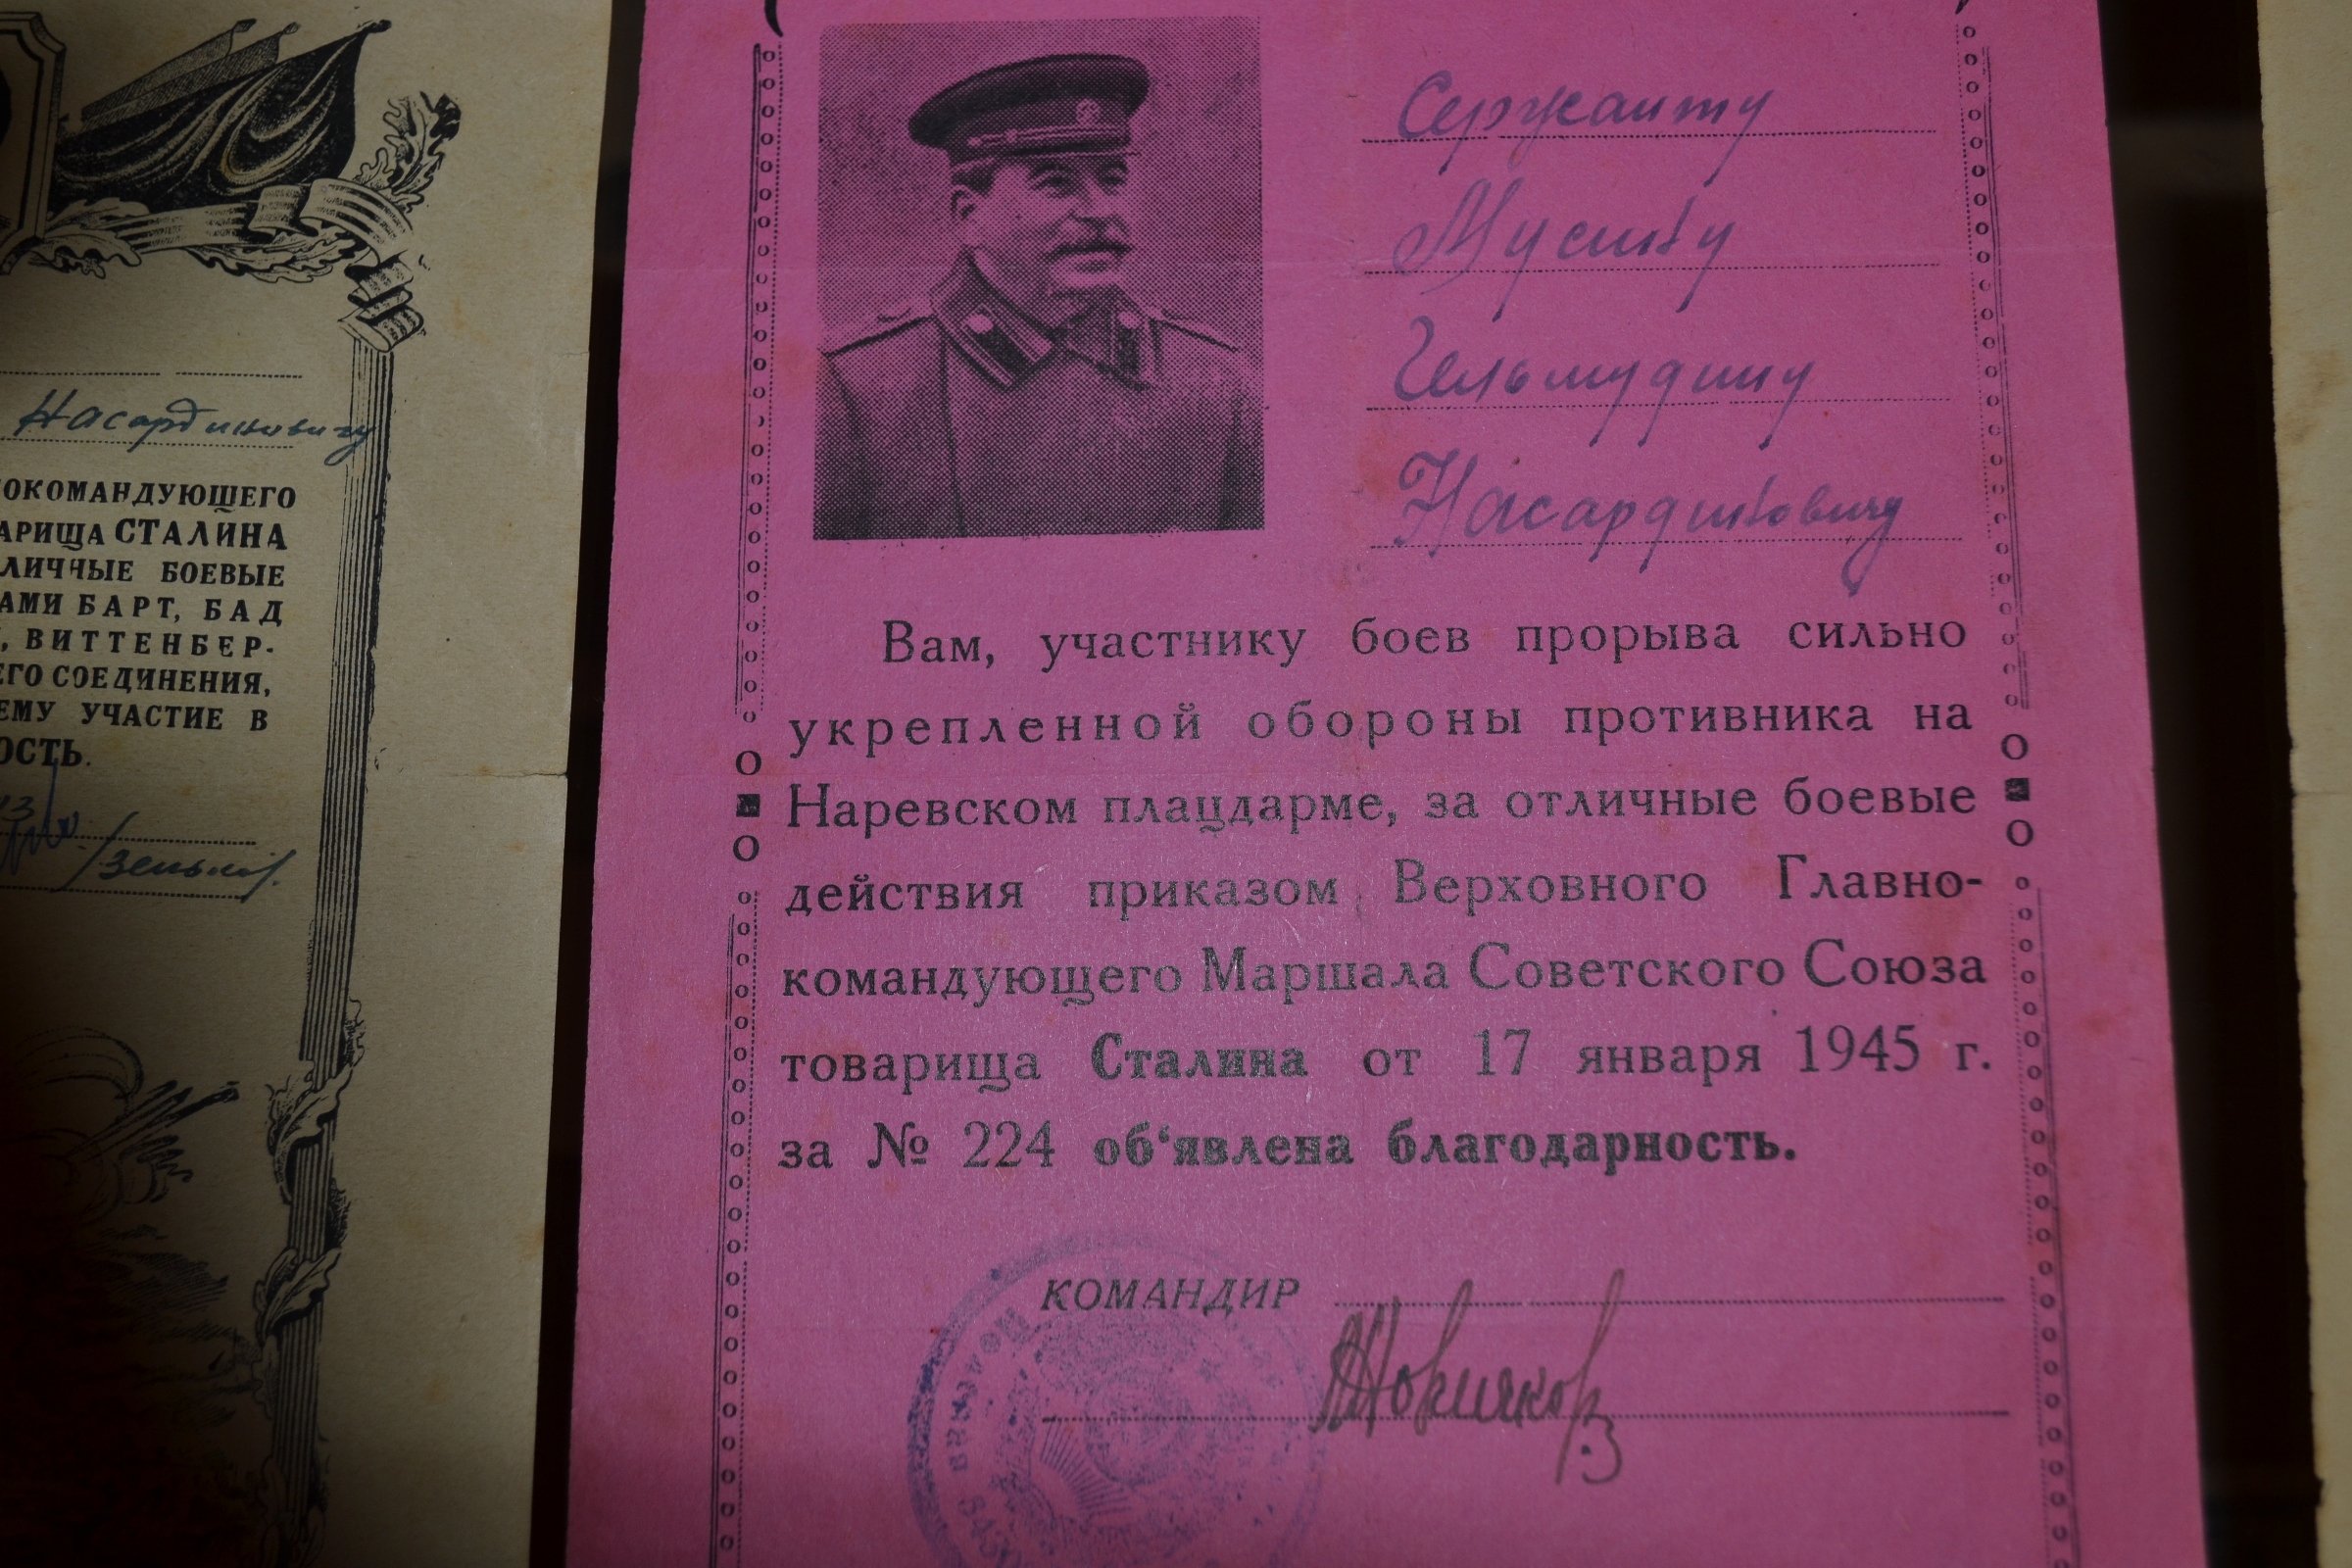 Насардиновичу
ОКОМАНДУЮЩЕГО
АРИЩА СТАЛИНА
ЛИЧНЫЕ БОЕВЫЕ
АМИ БАРТ, БАД
, ВИТТЕНБЕР-
ЕГО СОЕДИНЕНИЯ,
ЕМУ УЧАСТИЕ В
ОСТЬ.
Сержанту
Мусину
Гельмудину
Насардиновичу
Вам, участнику боев прорыва сильно
укрепленной обороны противника на
Наревском плацдарме, за отличные боевые
действия приказом Верховного Главно-
командующего Маршала Советского Союза
товарища Сталина от 17 января 1945 г.
за № 224 об‘явлена благодарность.
КОМАНДИР